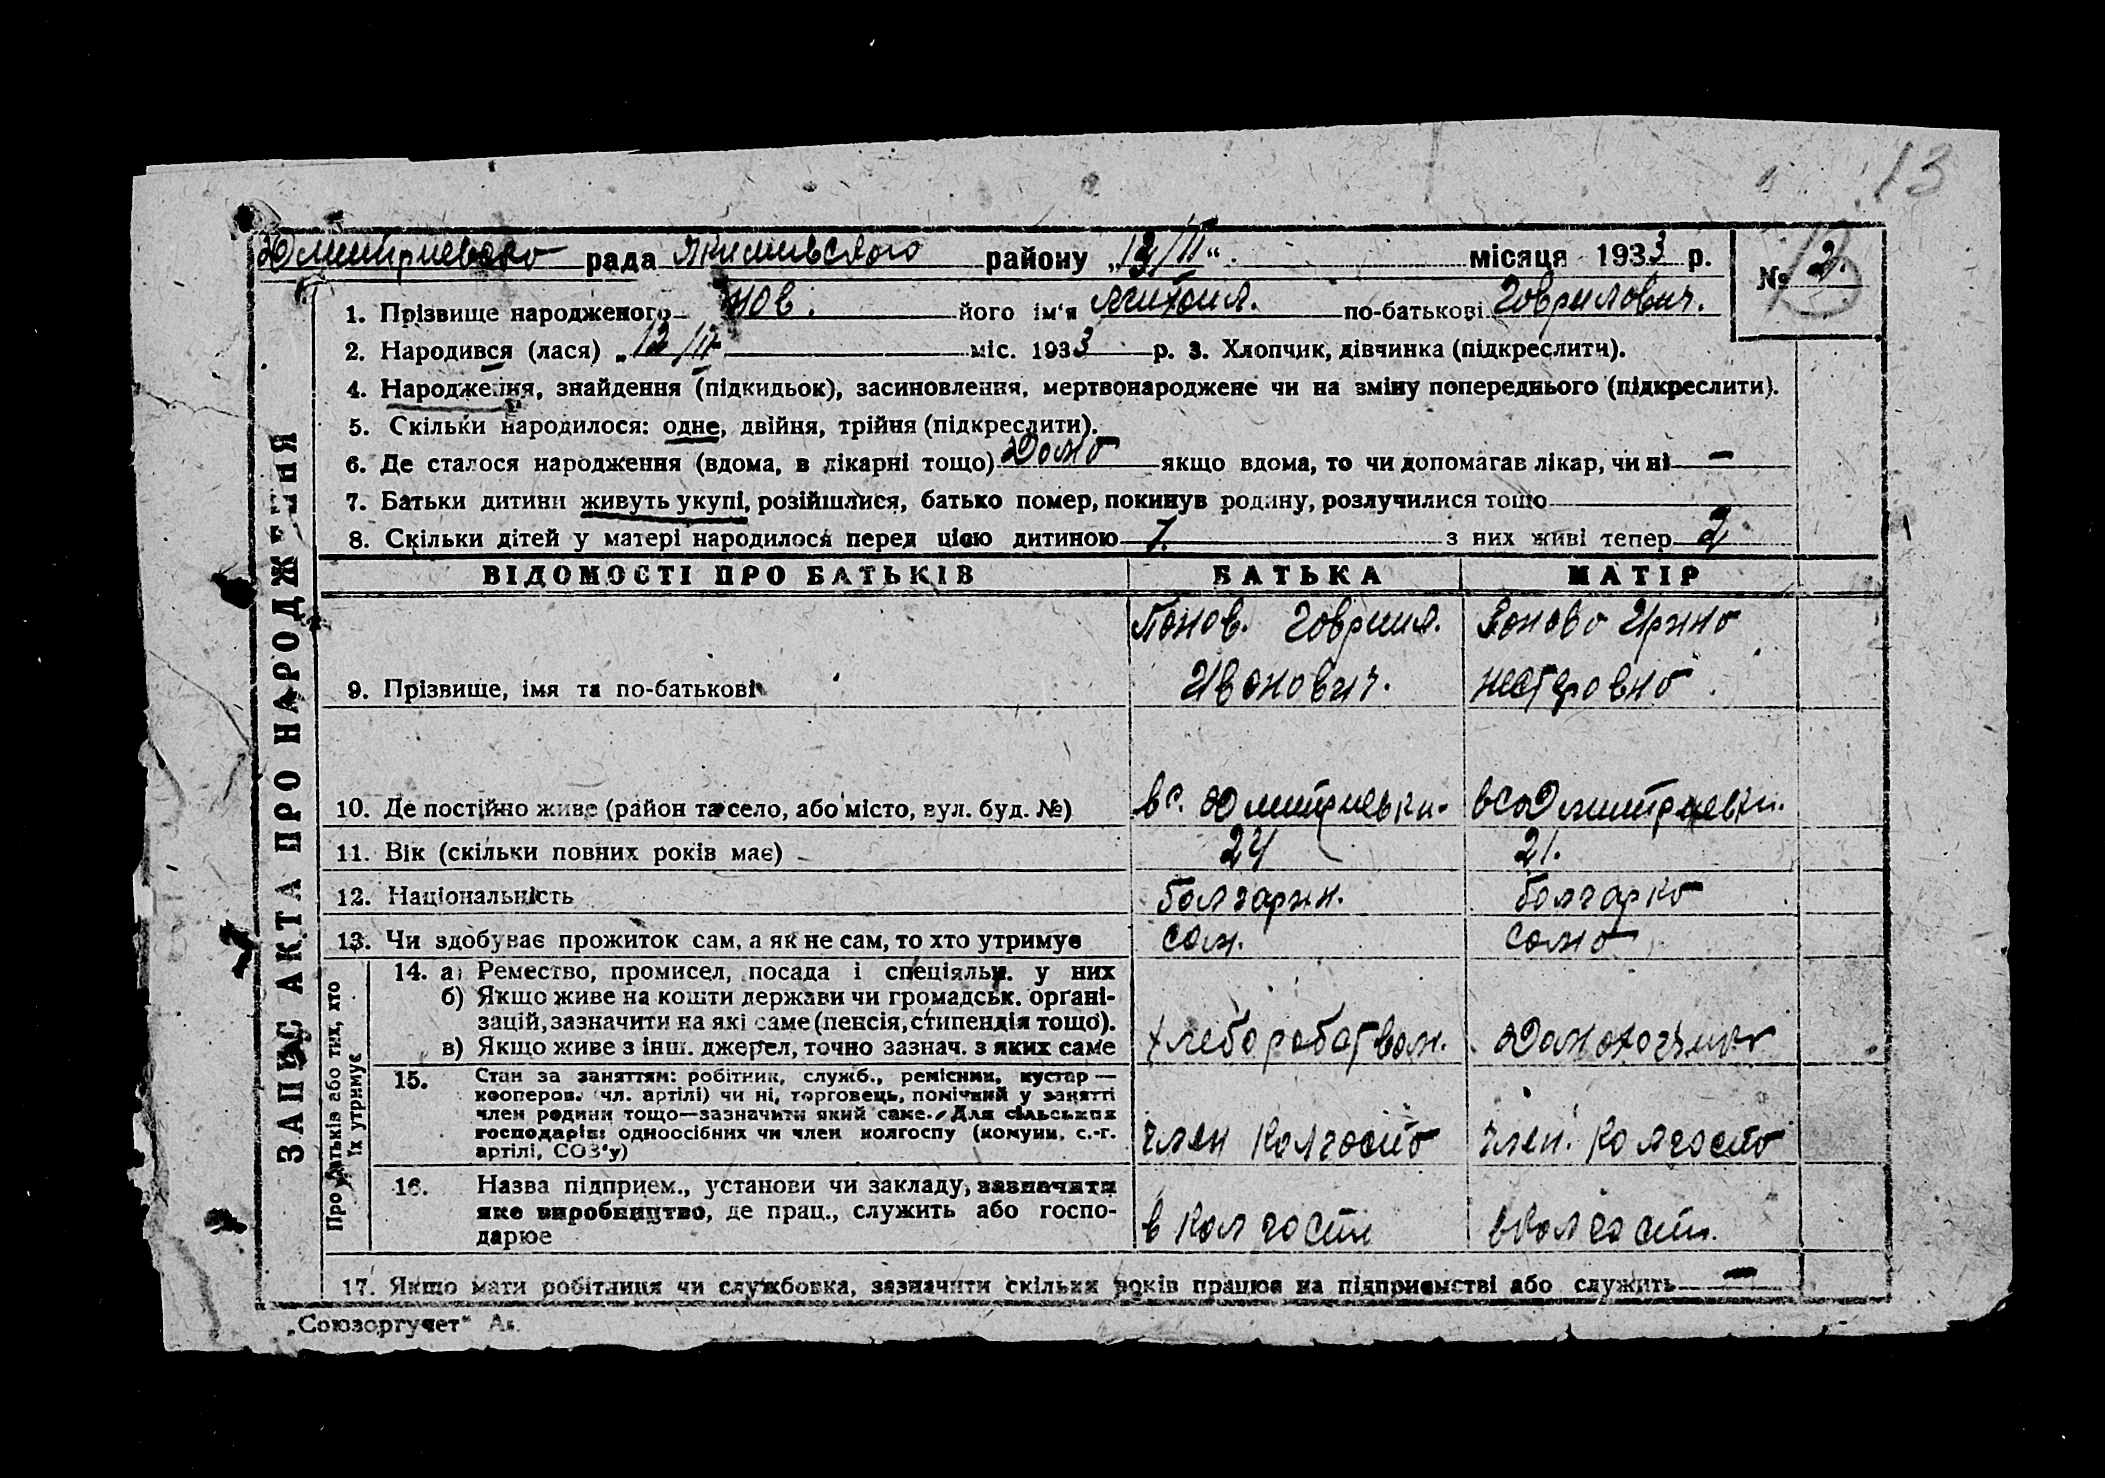 13
Дмитриевска рада Якимивського району „13/II“ місяця 1933 р. № 2.
1. Прізвище народженого нов. його ім'я Михаил. по-батькові Гаврилович.
2. Народився (лася) „12/II міс. 1933 р. 3. Хлопчик, дівчинка (підкреслити).
4. Народження, знайдення (підкидьок), засиновлення, мертвонароджене чи на зміну попереднього (підкреслити).
5. Скільки народилося: одне, двійня, трійня (підкреслити).
6. Де сталося народження (вдома, в лікарні тощо) Дома якщо вдома, то чи допомагав лікар, чи ні —
7. Батьки дитини живуть укупі, розійшлися, батько помер, покинув родину, розлучилися тощо
8. Скільки дітей у матері народилося перед цією дитиною 1. з них живі тепер 2
ЗАПИС АКТА ПРО НАРОДЖЕННЯ
ВІДОМОСТІ ПРО БАТЬКІВ БАТЬКА МАТІР
Панов. Гавриил. Панова Ирина
9. Прізвище, імя та по-батькові Иванович. Нестеровна
10. Де постійно живе (район та село, або місто, вул. буд. №) в с. Дмитриевки. в са Дмитриевки.
11. Вік (скільки повних років має) 24 21.
12. Національність болгарин. болгарка
13. Чи здобуває прожиток сам, а як не сам, то хто утримує сам. сама
Про батьків або тих, хто їх утримує
14. а) Ремество, промисел, посада і спеціяльн. у них
б) Якщо живе на кошти держави чи громадськ. органі-
зацій, зазначити на які саме (пенсія, стипендія тощо).
в) Якщо живе з інш. джерел, точно зазнач. з яких саме хлеборобством. Домохозяика
15. Стан за заняттям: робітник, служб., ремісник, кустар —
кооперов. (чл. артілі) чи ні, торговець, помічний у занятті
член родини тощо—зазначити який саме. Для сільських
господарів: одноосібник чи член колгоспу (комуни, с.-г.
артілі, СОЗ'у) член колгоспа член. колгоспа
16. Назва підприєм., установи чи закладу, зазначити
яке виробництво, де прац., служить або госпо-
дарює в колгоспи в колгоспи.
17. Якщо мати робітниця чи службовка, зазначити скільки років працює на підприємстві або служить —
„Союзоргучет“